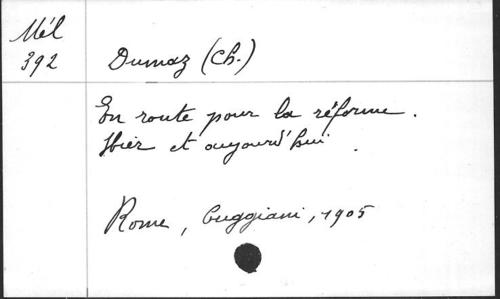 Mél
392
Dumaz (Ch.)
En route pour la réforme.
Hier et aujourd'hui.
Rome, Cuggiani, 1905